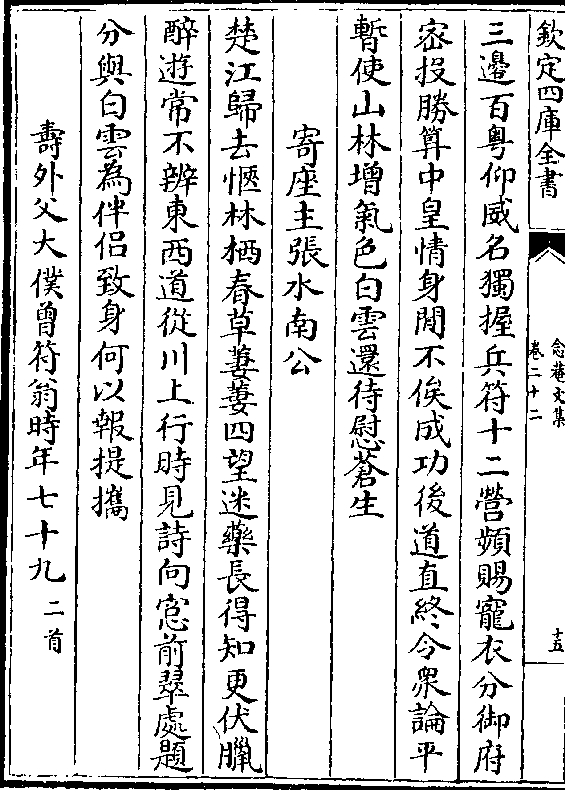 欽定四庫全書
念菴文集
卷二十二
十五
三邊百粤仰威名獨握兵符十二營頻賜寵衣分御府
宻投勝算中皇情身閒不俟成功後道直終令衆論平
暫使山林增氣色白雲還待慰蒼生
寄座主張水南公
楚江歸去愜林栖春草萋萋四望迷藥長得知更伏臘
醉遊常不辨東西道從川上行時見詩向窓前翠處題
分與白雲為伴侣致身何以報提攜
壽外父大僕曾符翁時年七十九二首